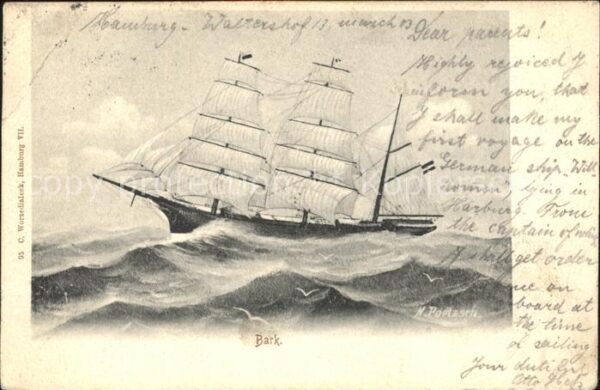 Hamburg - Waltershof 13, march 03
Dear parents!
Highly rejoiced I
inform you, that
I shall make my
first voyage on the
German ship
lying in
Harburg. From
the captain of
I shall get order
me on
board at
the time
of sailing
Your dutiful
Otto
95 C. Worzedialeck, Hamburg VII.
copy protection
Bark.